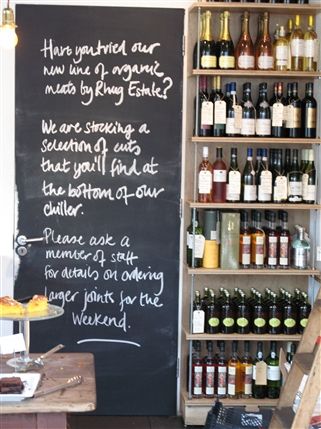 Have you tried our
new line of organic
meats by Rhug Estate?
We are stocking a
selection of cuts
that you'll find at
the bottom of our
chiller.
Please ask a
member of staff
for details on ordering
larger joints for the
Weekend.